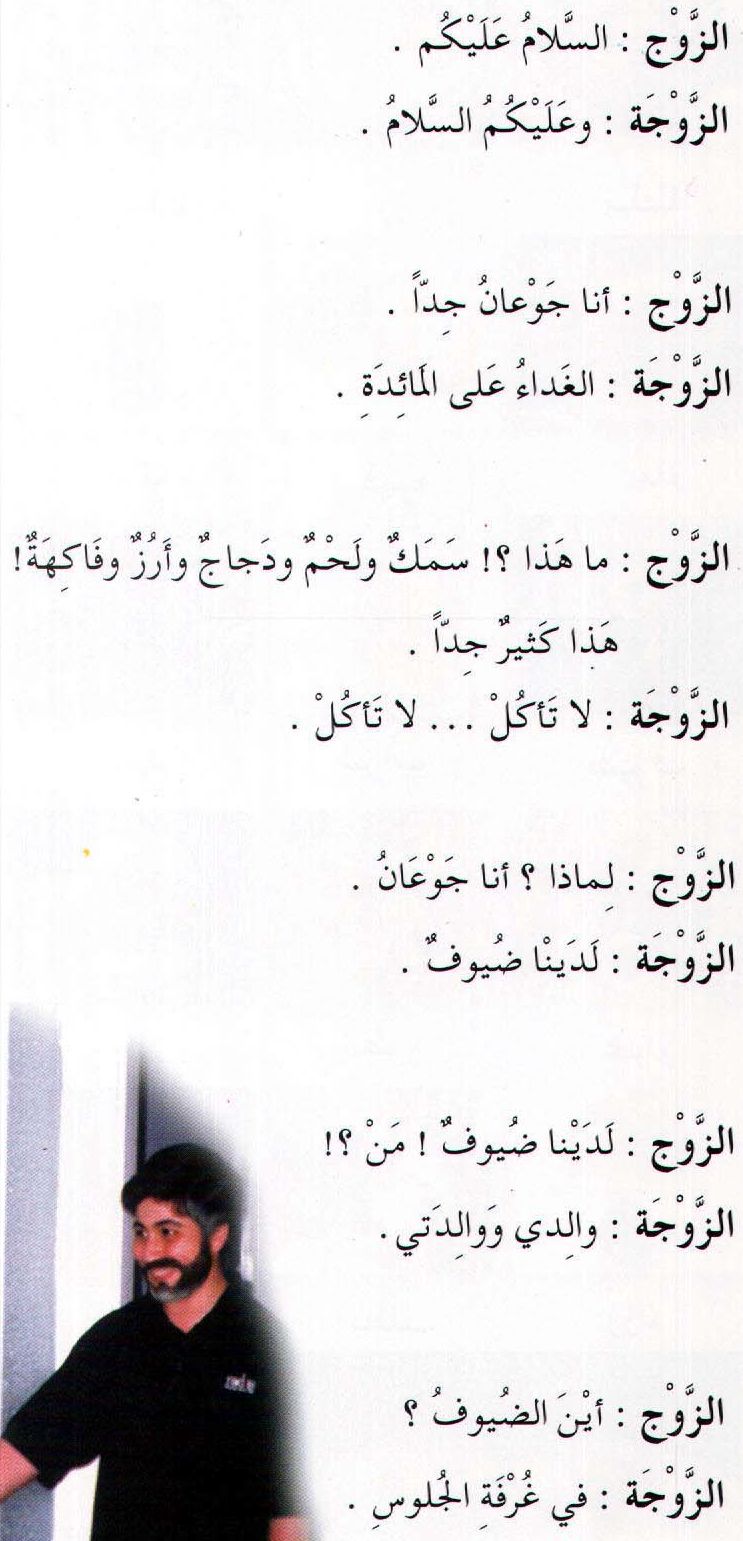 الزَّوْج : السَّلامُ عَلَيْكُم .
الزَّوْجَة : وعَلَيْكُمُ السَّلامُ .
الزَّوْج : أنا جَوْعانُ جِدّاً .
الزَّوْجَة : الغَداءُ عَلى المَائِدَةِ .
الزَّوْج : ما هَذا ؟! سَمَكٌ ولَحْمٌ ودَجاجٌ وأَرُزٌ وفَاكِهَةٌ!
هَذا كَثيرٌ جِدّاً .
الزَّوْجَة : لا تَأكُلْ ... لا تَأكُلْ .
الزَّوْج : لِماذا ؟ أنا جَوْعَانُ .
الزَّوْجَة : لَدَيْنا ضُيوفٌ .
الزَّوْج : لَدَيْنا ضُيوفٌ ! مَنْ ؟!
الزَّوْجَة : والِدي وَوالِدَتي .
الزَّوْج : أيْنَ الضُيوفُ ؟
الزَّوْجَة : في غُرْفَةِ الجُلوسِ .